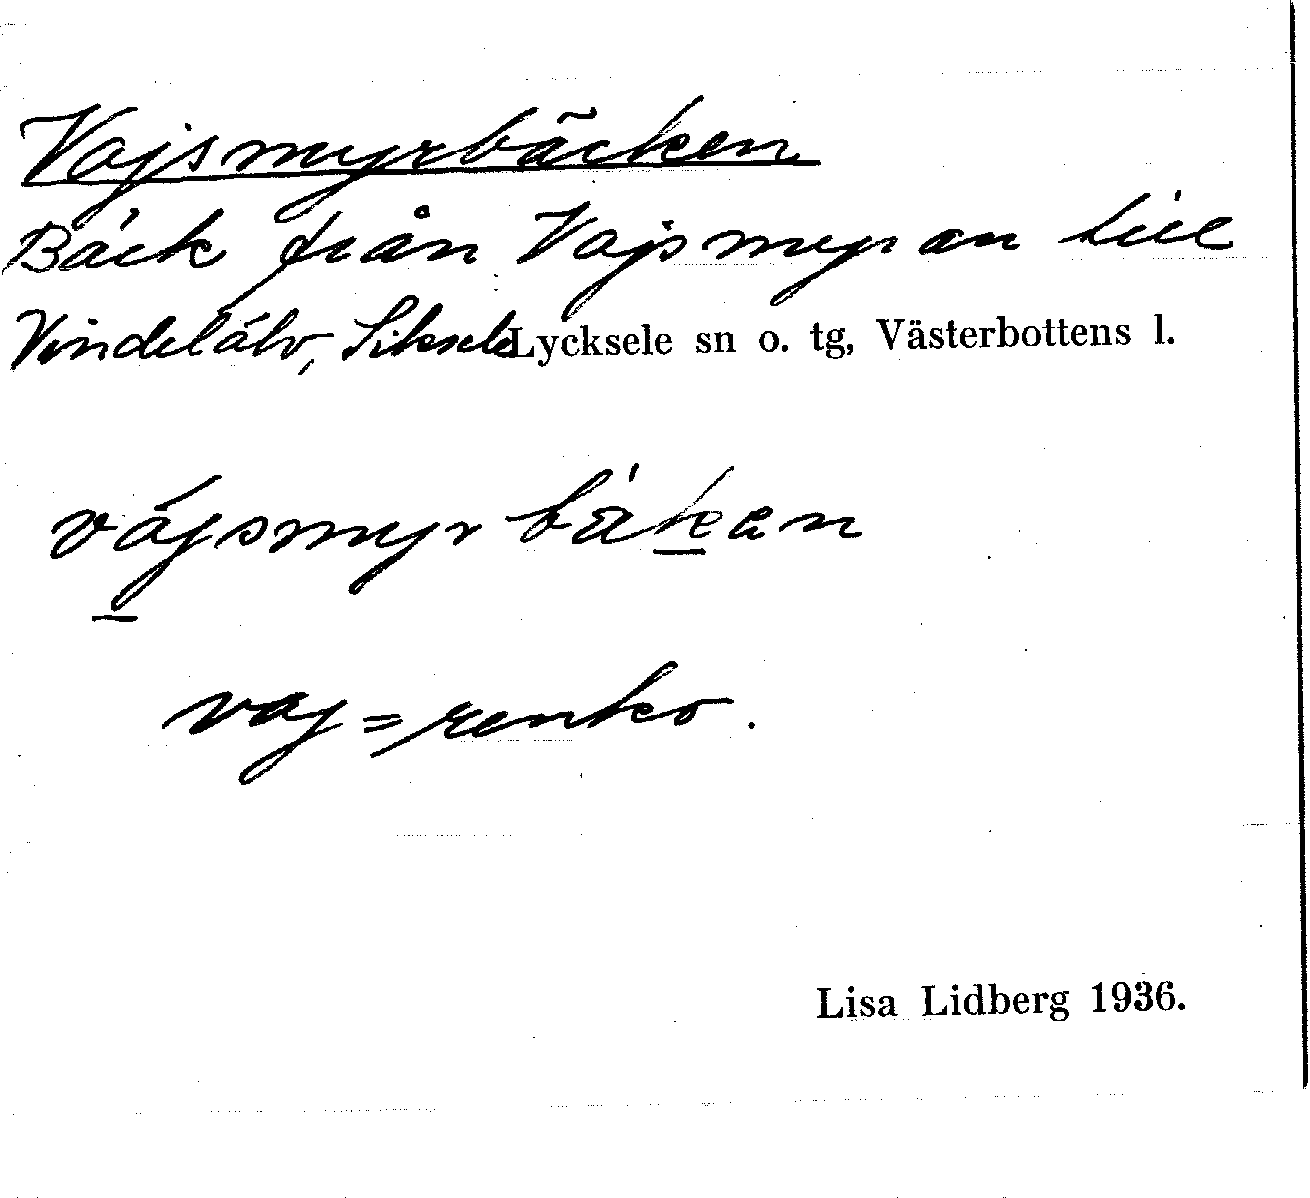 Vajsmyrbäcken
Bäck från Vajsmyran till
Vindelälv, Siksele Lycksele sn o. tg, Västerbottens l.
vájsmyrbäkan
vaj = renko.
Lisa Lidberg 1936.